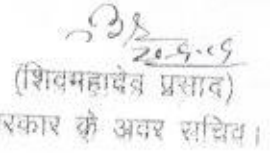 (शिवमहादेव प्रसाद)
रकार के अवर सचिव।